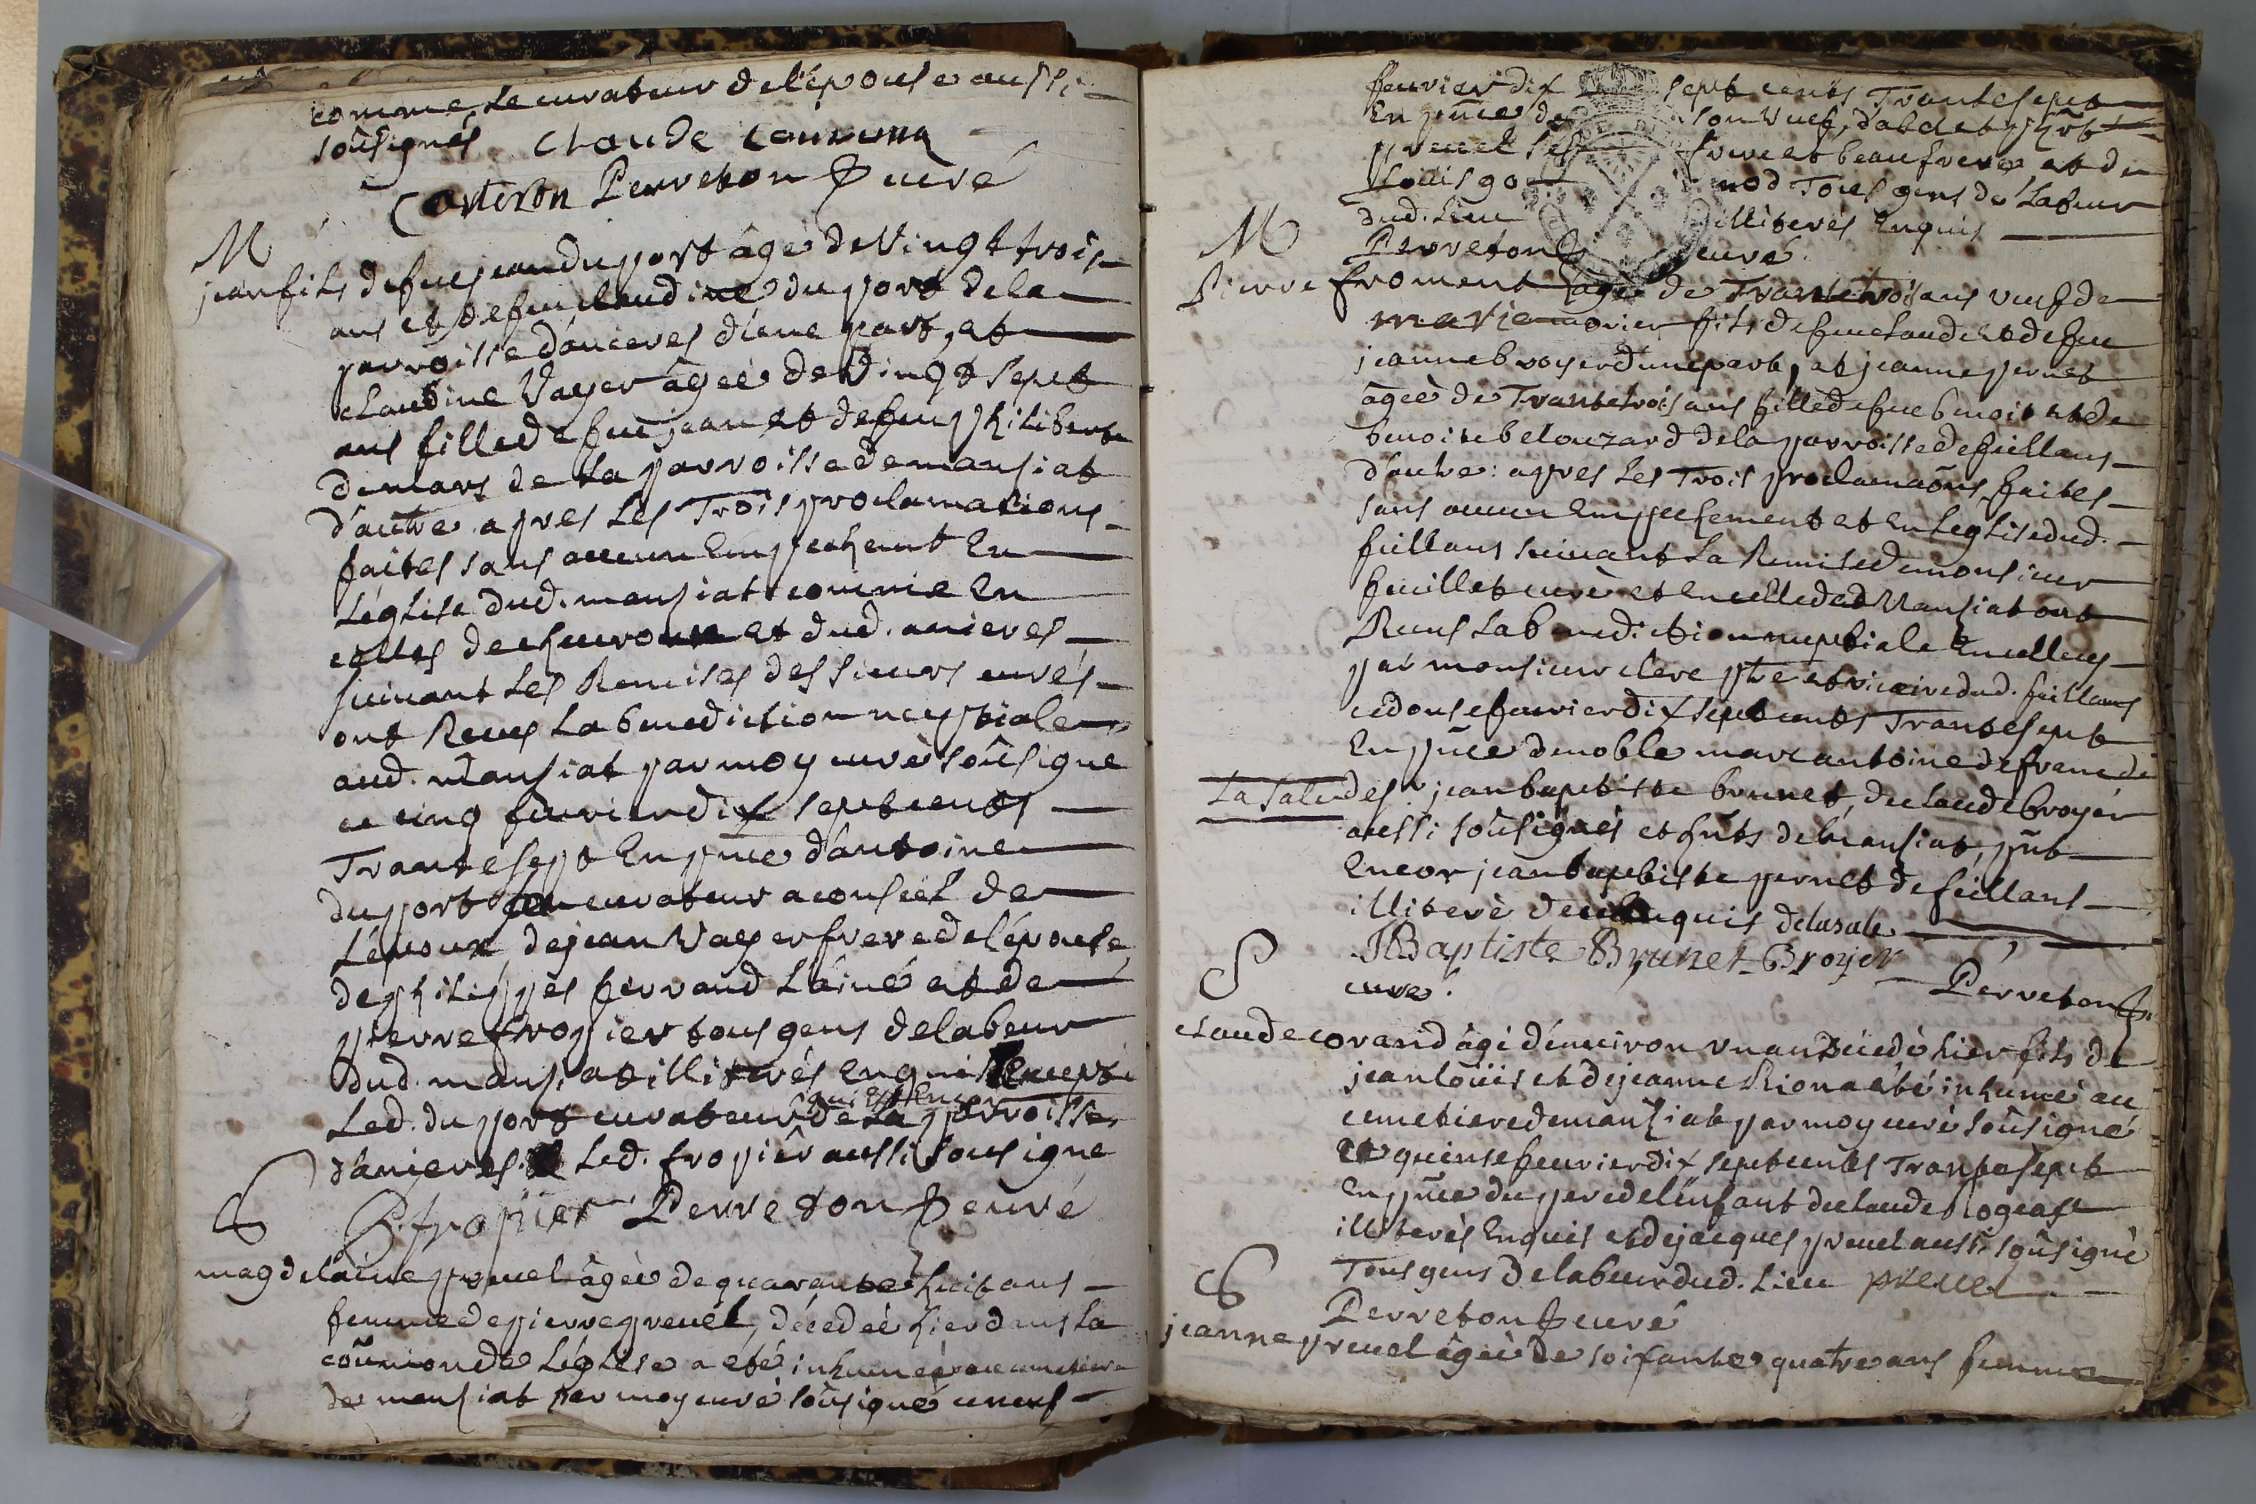 comme le curateur de l'épouse aussi
soûsignés Claude
Carteron Perreton curé
M
jean fils de feu jean duport âgé de Vingt trois
ans et de feu claudine du port de la
parroisse d'anieres d'une part, et
claudine Vayer âgée de Vingt sept
ans fille de feu jean et de feu philiberte
demars de la parroisse de mansiat
d'autre apres les Trois proclamations
faites sans aucun Empechemt En
l'église dud. mansiat comme En
celles de et dud. anieres
suivant les Remises des sieurs curés
ont Receu la benediction nuptiale
aud. mansiat par moy curé soûsigné
ce cinq fevrier dix sept cents
Trante sept En pñce d'antoine
du port son curateur a conseil de
l'epoux, de jean Vayer frere de l'épouse
de philippes ferrand l'ainé et de
pierre fropier tous gens de labeur
dud. mansiat illiterés Enquis Excepté
qui Est Encor
Led. du port curateur de la parroisse
d'anieres Led. fropier aussi sousigné
P. fropier Perreton curé
S
magdelaine prevel âgée de quarante huit ans
femme de pierre prevel, décedée hier dans la
coñunion de l'église a eté inhumée au cimetiere
de mansiat par moy curé soûsigné ce neuf
fevrier dix sept cents Trante sept
En pñce de son veuf, d'
prevel ses frere et beaufrere et de
Louis go mod Tous gens de Labeur
dud. lieu illiterés Enquis
Perreton curé
M
Pierre froment âgé de Trante trois ans veuf de
marie morier fils de feu claude et de feu
jeanne broyer d'une part, et jeanne pernet
âgée de Trante trois ans fille de feu benoit et de
benoite belouzard de la parroisse de feillans
d'autre : apres les Trois proclamaõns faites
sans aucun Empechement et En l'eglise dud.
feillans suivant la Remise de monsieur
feuillet curé et en celle dud Mansiat ont
Receu la benediction nuptiale En celle cy
par monsieur clere ptre et vicaire dud. feillans
ce douse fevrier dix sept cents Trante sept
En pñce de noble marc antoine de franc de
La Sale des jean baptiste brunet, de claude broyer
aussi soûsignés et hñts de mansiat, pñt
Encor jean baptiste pernet de feillans
illiteré Enquis delasale
JBaptiste Brunet Broyer
Perreton
curé.
S
claude corand âgé d'environ un an décedé hier fils de
jean loüis et de jeanne Rion a été inhumé au
cimetiere de mansiat par moy curé soûsigné
ce quinse fevrier dix sept cents Trante sept
En pñce du pere de l'enfant de claude
illiterés Enquis et de jacques prevel aussi soûsigné
Tous gens de labeur dud. lieu prevel
Perreton curé
S
jeanne prevel âgée de soixante quatre ans femme